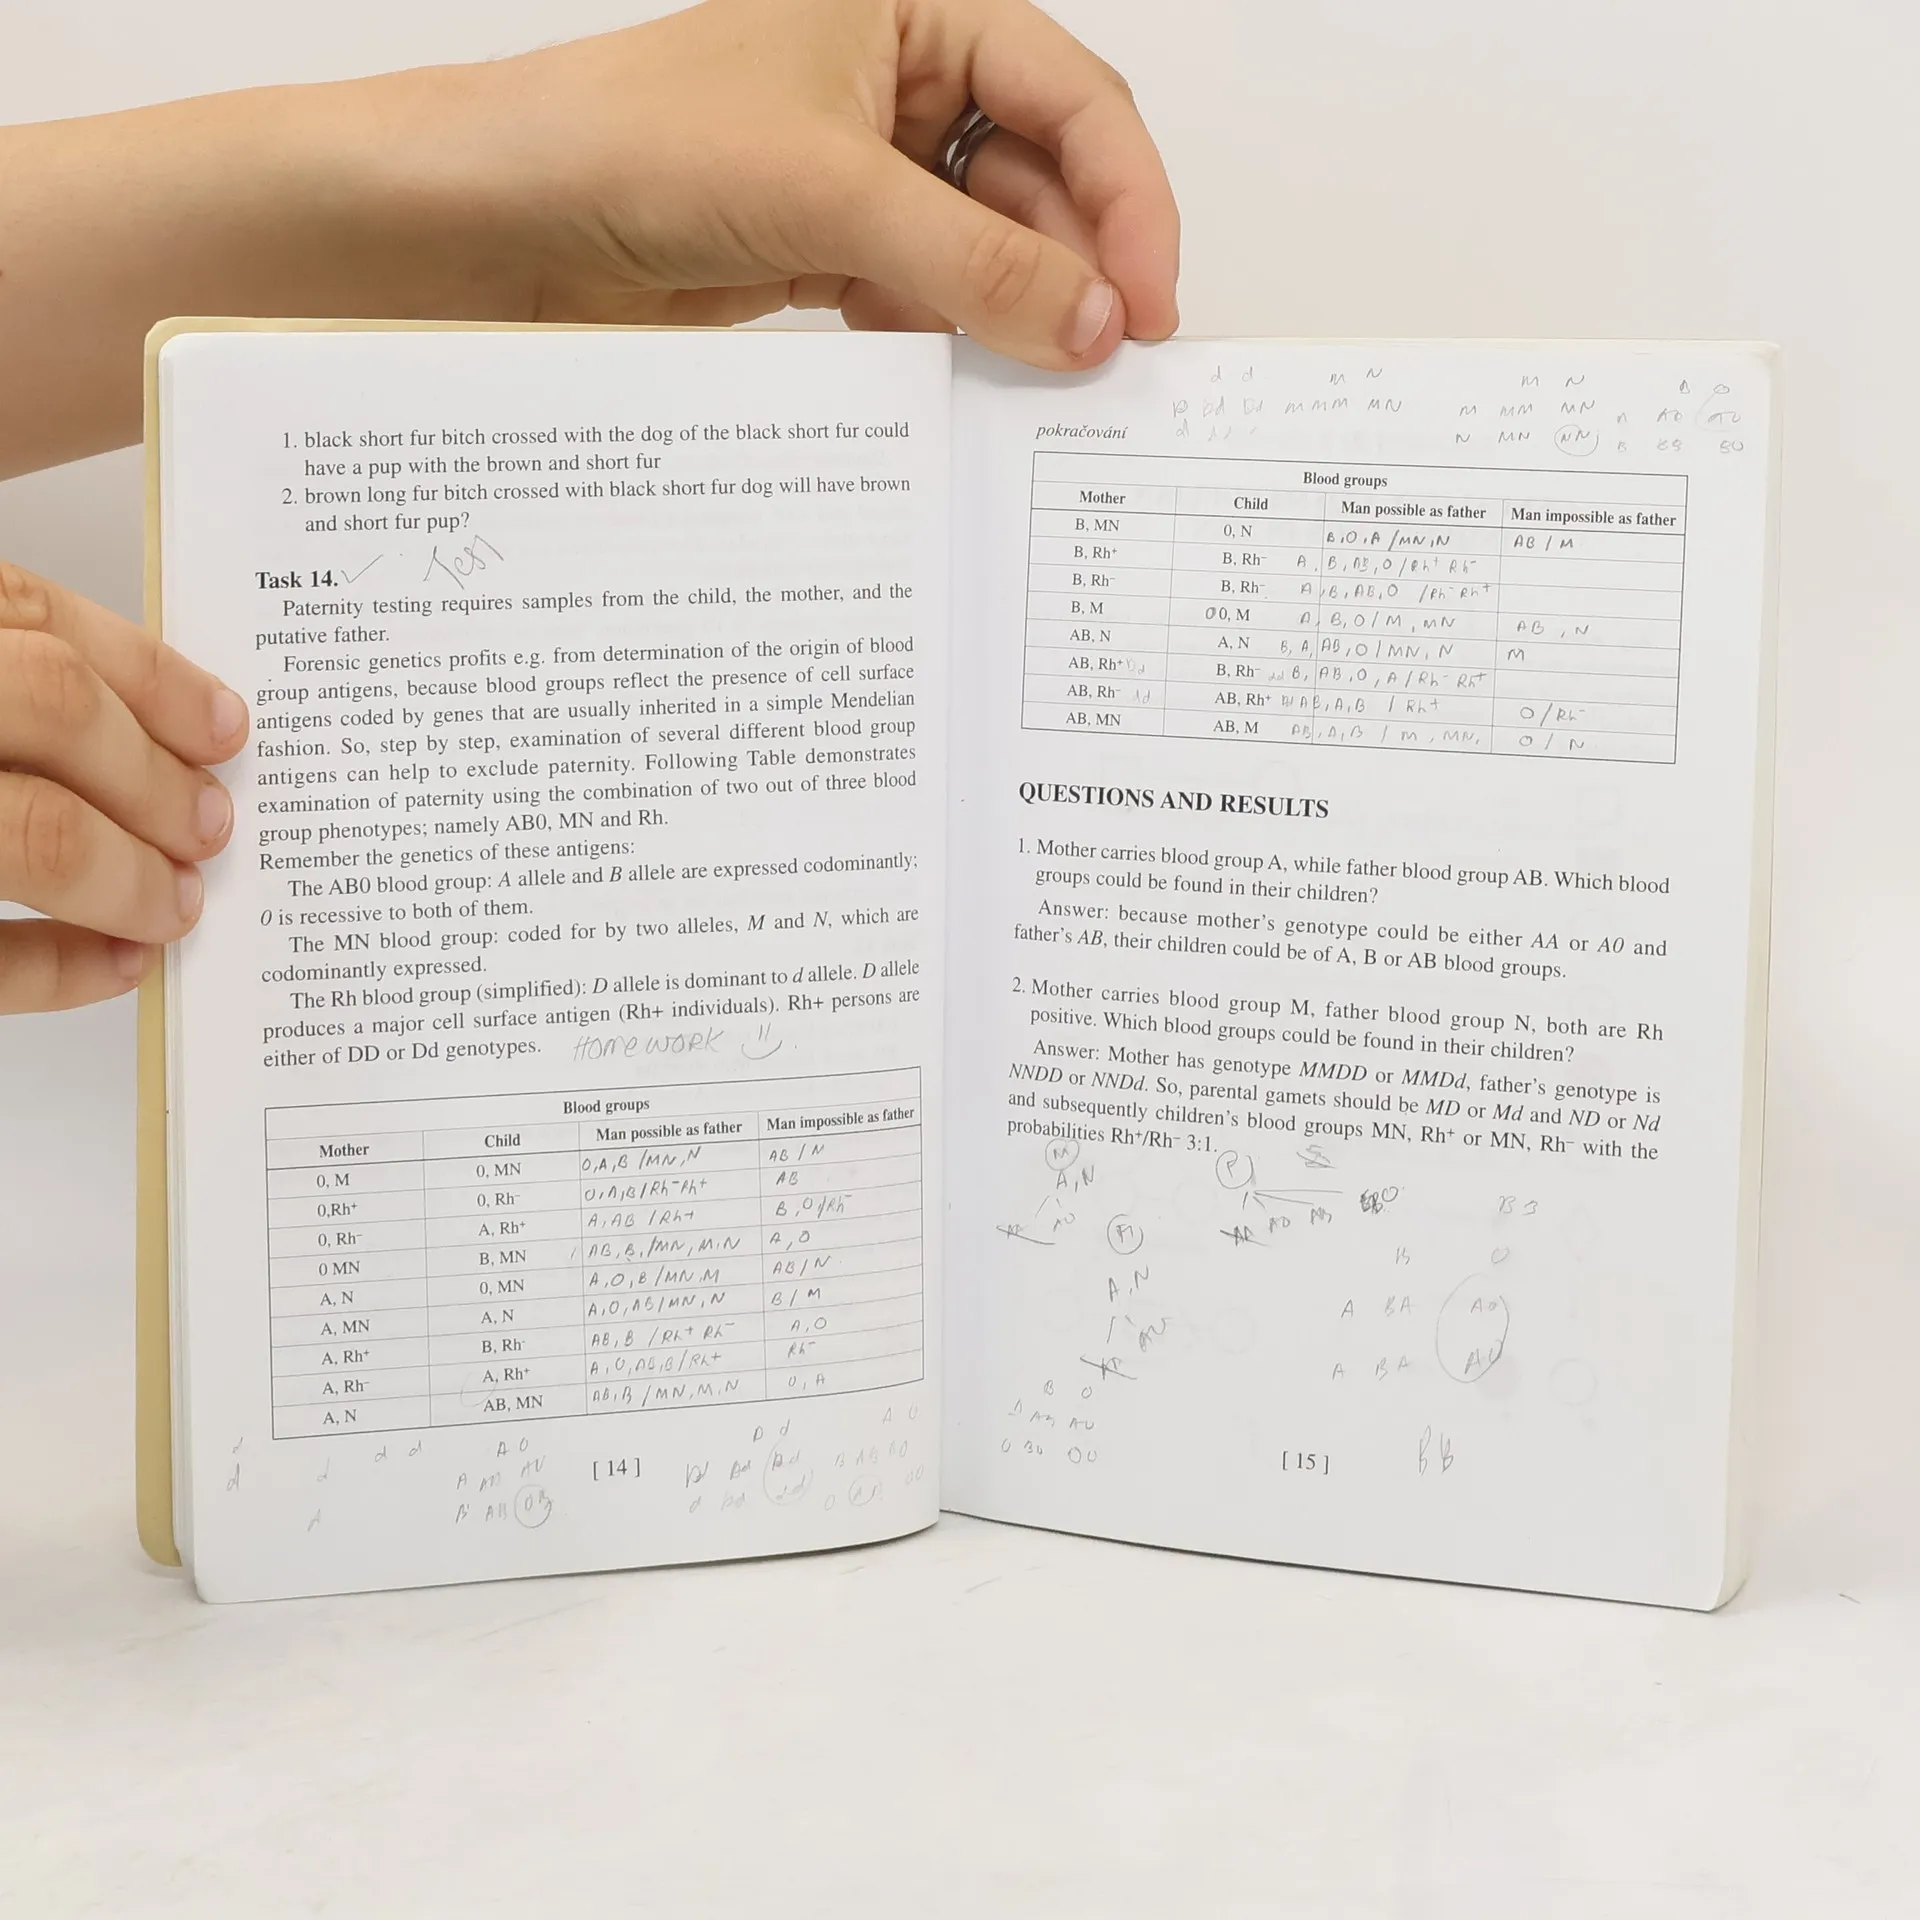 1. black short fur bitch crossed with the dog of the black short fur could
have a pup with the brown and short fur
2. brown long fur bitch crossed with black short fur dog will have brown
and short fur pup?
Task 14. Test
Paternity testing requires samples from the child, the mother, and the
putative father.
Forensic genetics profits e.g. from determination of the origin of blood
group antigens, because blood groups reflect the presence of cell surface
antigens coded by genes that are usually inherited in a simple Mendelian
fashion. So, step by step, examination of several different blood group
antigens can help to exclude paternity. Following Table demonstrates
examination of paternity using the combination of two out of three blood
group phenotypes; namely AB0, MN and Rh.
Remember the genetics of these antigens:
The AB0 blood group: A allele and B allele are expressed codominantly;
0 is recessive to both of them.
The MN blood group: coded for by two alleles, M and N, which are
codominantly expressed.
The Rh blood group (simplified): D allele is dominant to d allele. D allele
produces a major cell surface antigen (Rh+ individuals). Rh+ persons are
either of DD or Dd genotypes. Homework
Blood groups
Mother Child Man possible as father Man impossible as father
0, M 0, MN 0,A,B /MN,N AB / M
0,Rh⁺ 0, Rh⁻ 0,A,B/Rh⁻Rh⁺ AB
0, Rh⁻ A, Rh⁺ A,AB /Rh+ B,0/Rh⁻
0 MN B, MN AB,B,/MN,M,N A,0
A, N 0, MN A,0,B/MN,M AB/N
A, MN A, N A,0,AB/MN,N B/M
A, Rh⁺ B, Rh⁻ AB,B /Rh+ Rh⁻ A,0
A, Rh⁻ A, Rh⁺ A,0,AB,B/Rh+ Rh⁻
A, N AB, MN AB,B /MN,M,N 0, A
[ 14 ]
pokračování
Blood groups
Mother Child Man possible as father Man impossible as father
B, MN 0, N B,0,A /MN,N AB / M
B, Rh⁺ B, Rh⁻ A, B, AB,0/Rh⁺ Rh⁻
B, Rh⁻ B, Rh⁻ A,B,AB,0 /Rh⁻ Rh+
B, M 0, M A, B,0/M,MN AB, N
AB, N A, N B, A, AB,0/MN,N M
AB, Rh⁺ Dd B, Rh⁻ dd B, AB,0,A/Rh⁻ Rh+
AB, Rh⁻ dd AB, Rh⁺ AB,A,B / Rh+ 0/Rh⁻
AB, MN AB, M AB,A,B / M, MN, 0 / N
QUESTIONS AND RESULTS
1. Mother carries blood group A, while father blood group AB. Which blood
groups could be found in their children?
Answer: because mother's genotype could be either AA or A0 and
father's AB, their children could be of A, B or AB blood groups.
2. Mother carries blood group M, father blood group N, both are Rh
positive. Which blood groups could be found in their children?
Answer: Mother has genotype MMDD or MMDd, father's genotype is
NNDD or NNDd. So, parental gamets should be MD or Md and ND or Nd
and subsequently children's blood groups MN, Rh⁺ or MN, Rh⁻ with the
probabilities Rh⁺/Rh⁻ 3:1.
[ 15 ]